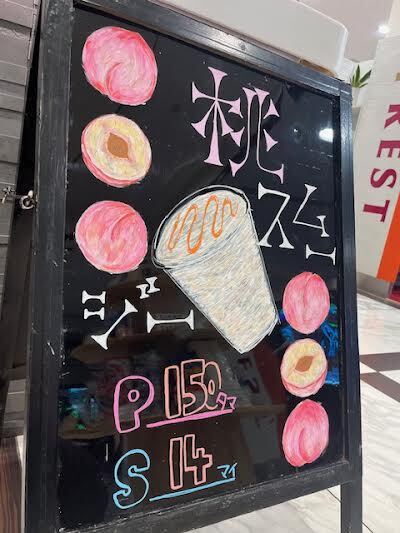 桃
スムー
ジー
P 150タマ
S 14マイ
REST